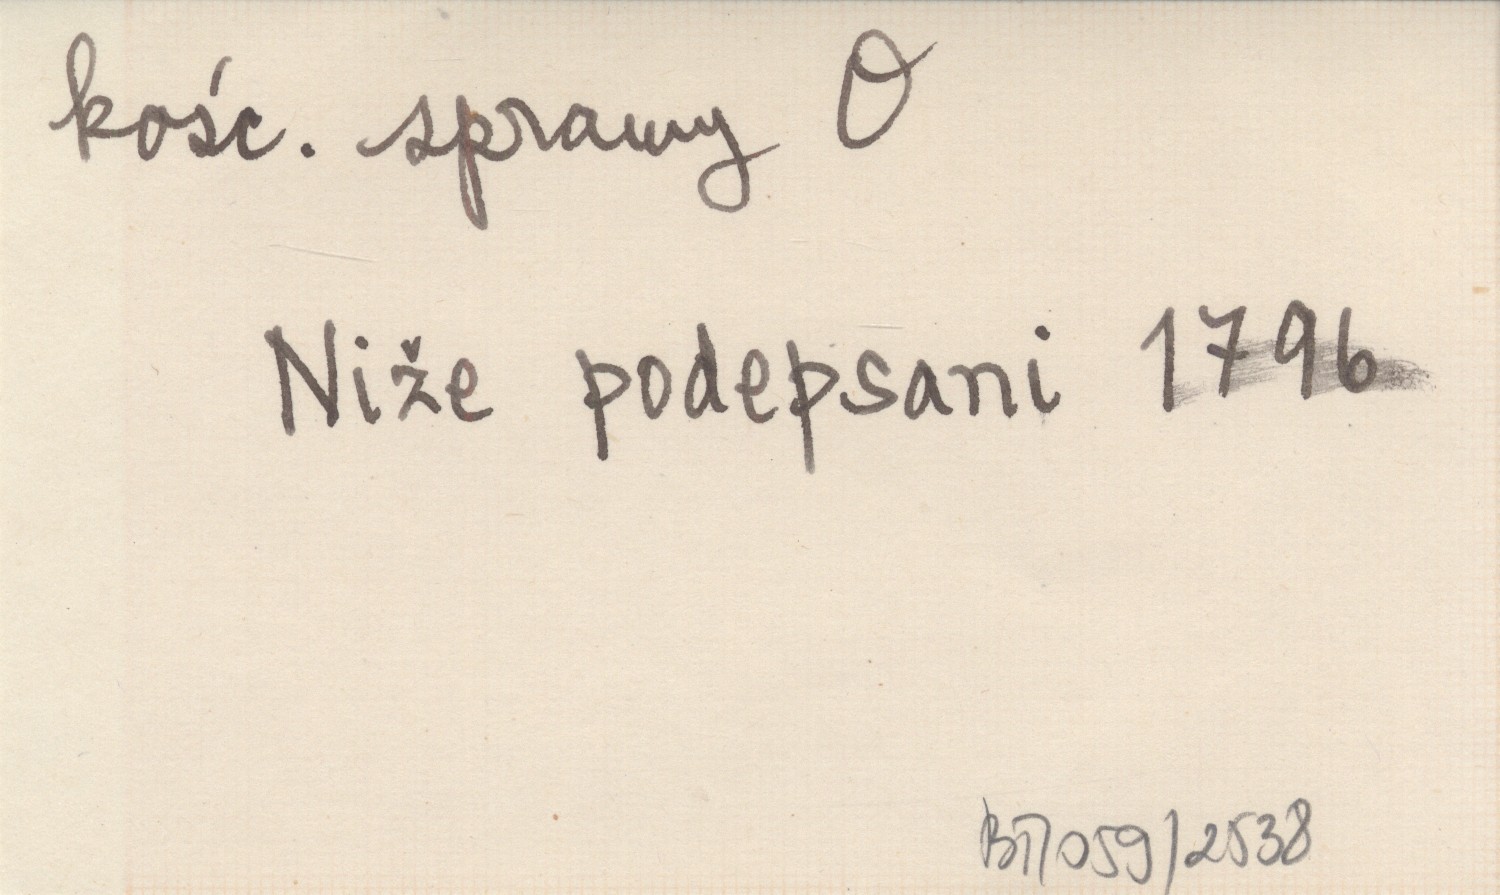 kośc. sprawy O
Niže podepsani 1796
BT/059/2538